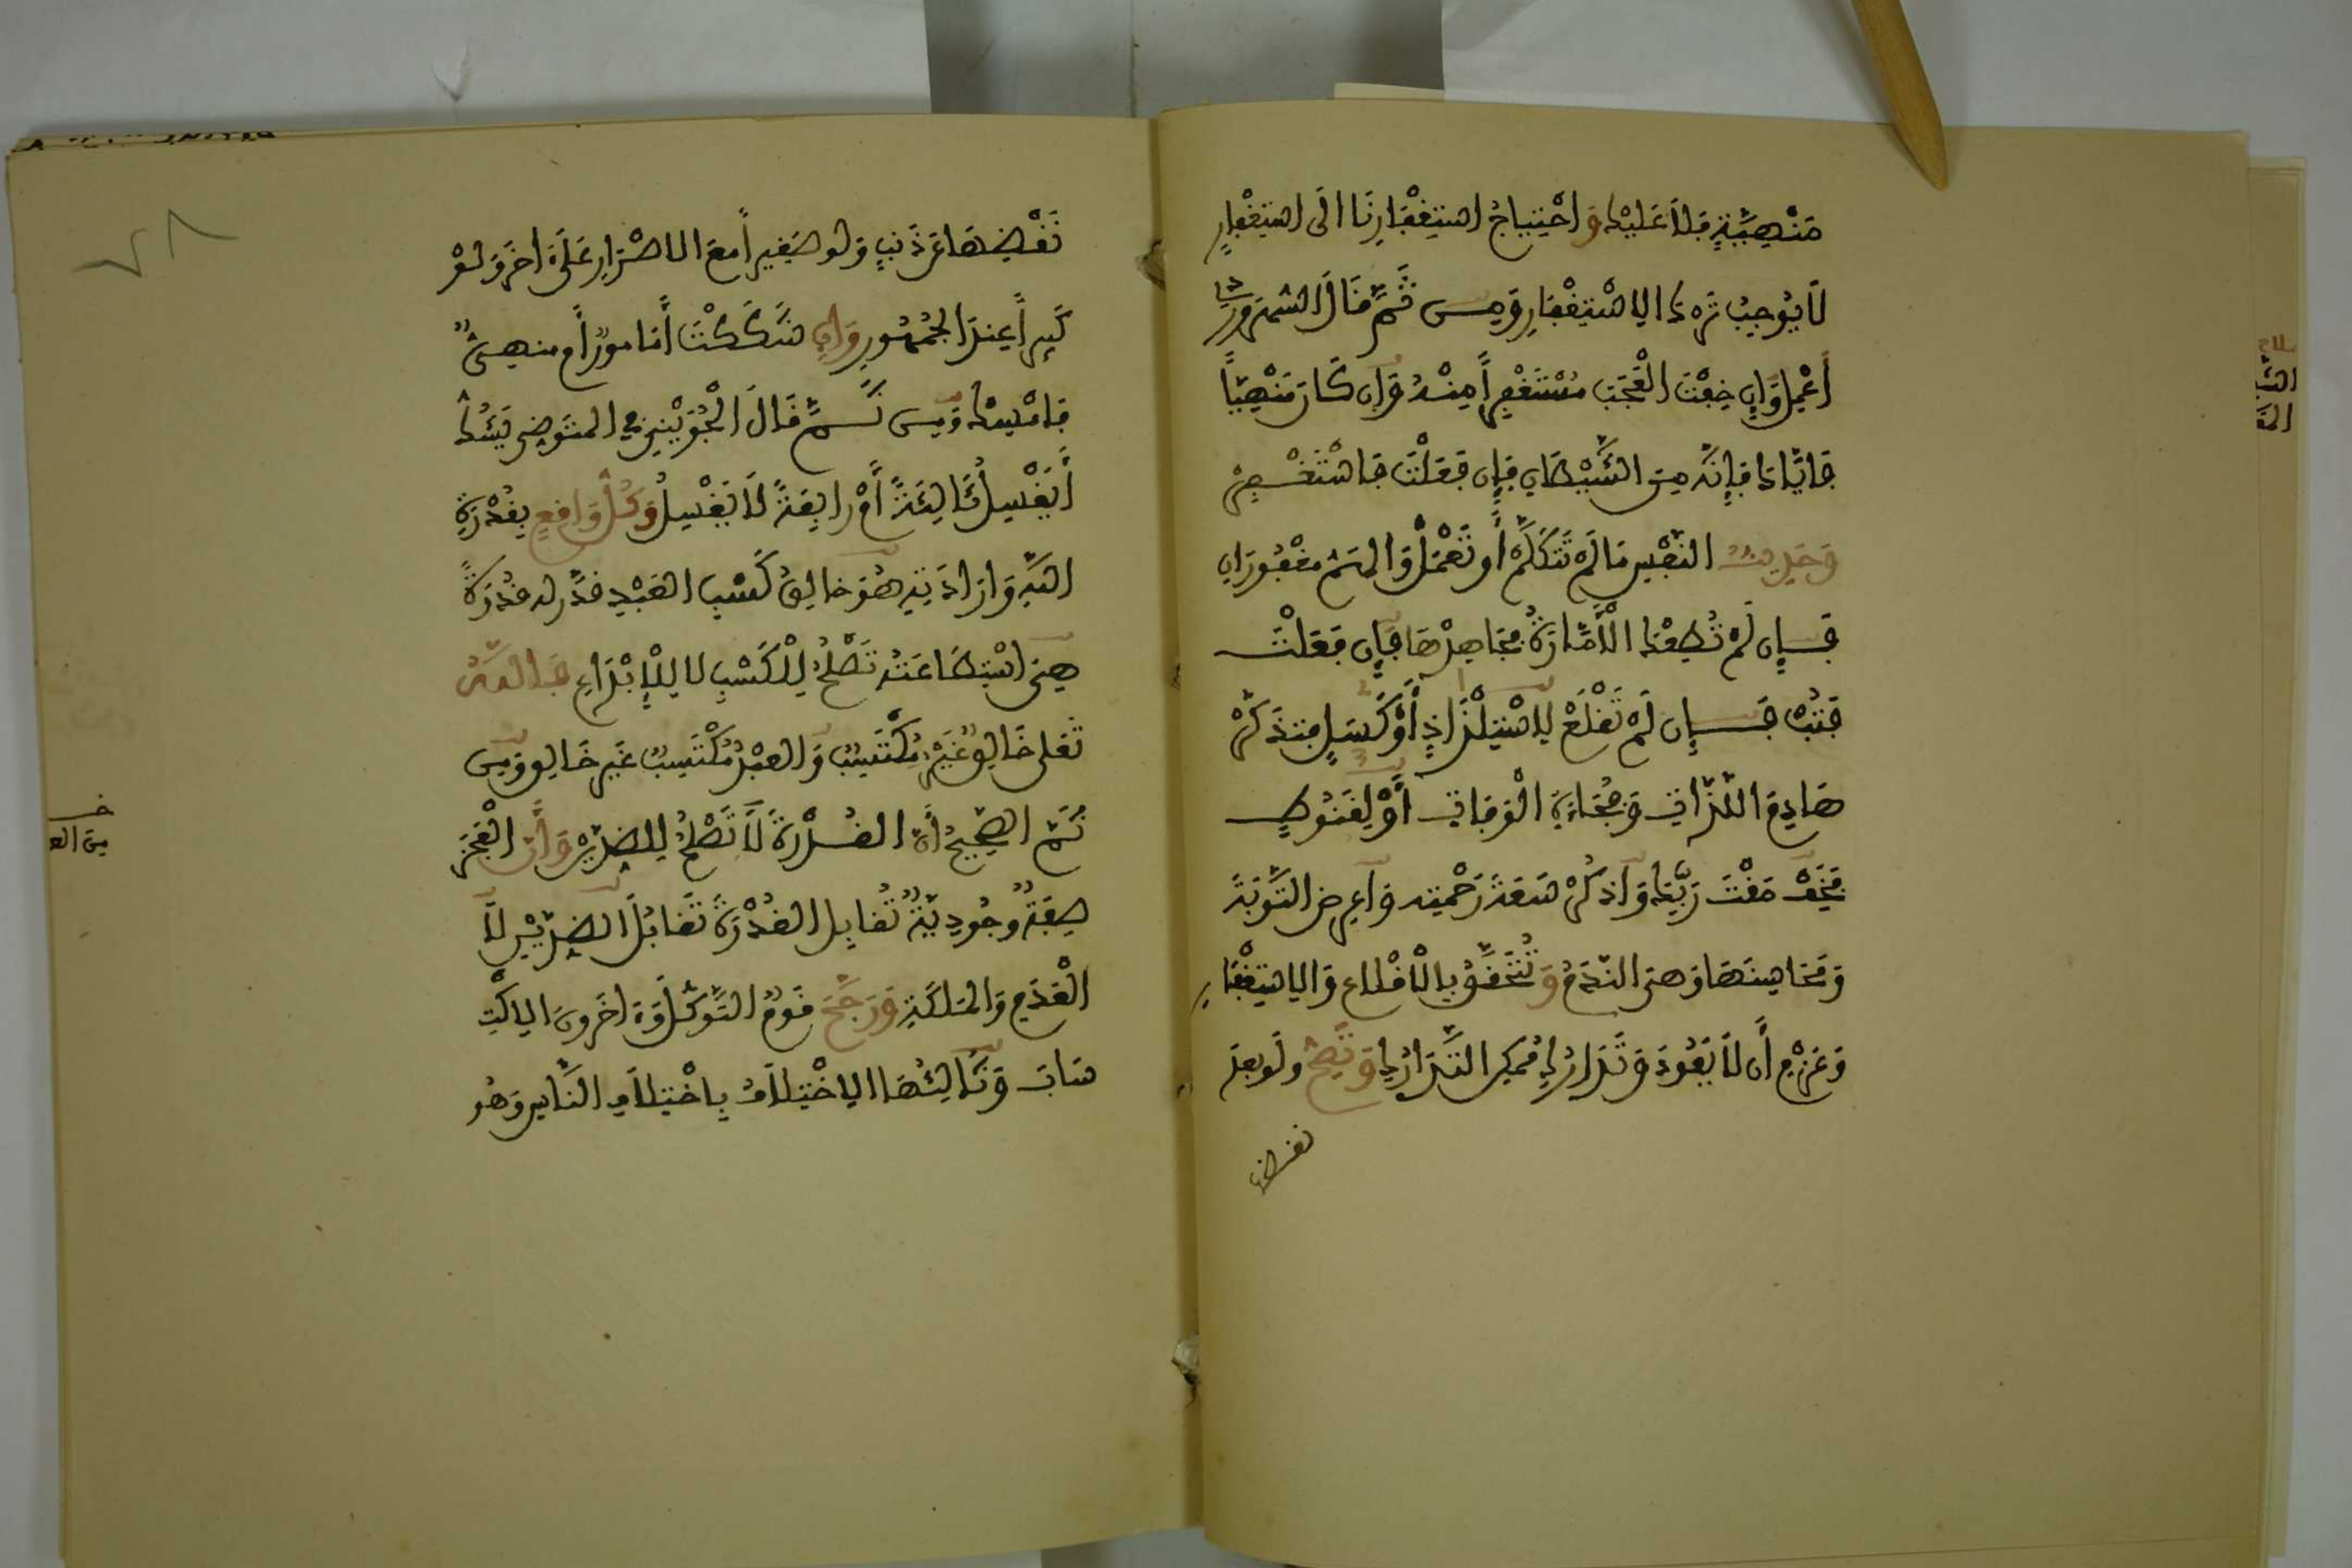 مَنْهِيَّةٍ فَلَا عَلَيْكَ وَاحْتِيَاجُ اسْتِغْفَارِنَا الَى اسْتِغْفَارٍ
لَا يُوجِبُ تَرْكَ الِاسْتِغْفَارِ وَمِنْ ثَمَّ قَالَ السُّهْرَوَرْدِي
أَعْمِلْ وَإِن خِفْتَ الْعُجْبَ مُسْتَغْفِراً مِنْهُ وَإِن كَانَ مَنْهِيّاً
فَإِيَّاكَ فَإِنَّهُ مِنَ الشَّيْطَانِ فَإِن فَعَلْتَ فَاسْتَغْفِرْ
وَحَدِيثُ النَّفْسِ مَا لَمْ تَتَكَلَّمْ أَو تَعْمَلْ وَالْهَمُّ مَغْفُورَانِ
فَإِن لَمْ تُطِعْكَ الْأَمَّارَةُ فَجَاهِدْهَا فَإِن فَعَلْتَ
فَتُبْ فَإِن لَمْ تُقْلِعْ لِاسْتِلْذَاذٍ أَوْ كَسَلٍ فَتَذَكَّرْ
هَادِمَ اللَّذَّاتِ وَفُجَاءَةَ الْوَفَاتِ أَوْ لِقُنُوطٍ
فَخَفْ مَقْتَ رَبِّكَ وَاذْكُرْ سَعَةَ رَحْمَتِهِ وَاعْرِضِ التَّوْبَةَ
وَمَحَاسِنَهَا وَهِيَ النَّدَمُ وَتَتَحَقَّقُ بِالْاقْلَاعِ وَالِاسْتِغْفَارِ
وَعَزْمِ أَن لَا يَعُودَ وَتَدَارُكِ مُمْكِنِ التَّدَارُكِ وَتَصِحُّ وَلَو بَعْدَ
نقضها
نَقْضِهَا عَن ذَنْبٍ وَلَو صَغِيراً مَعَ الاصْرَارِ عَلَى اخَرَ وَلَوْ
كَبِيراً عِنْدَ الْجُمْهُورِ وَإِن شَكَكْتَ أَمَامُورٌ أَم مَنْهِيٌّ
فَامْسِكْ وَمِن ثَمَّ قَالَ الْجُوَيْنِي فِي الْمُتَوَضِّي يَشُكُّ
أَيَغْسِلُ ثَالِثَةً أَمْ رَابِعَةً لَا يَغْسِلُ وَكُلٌّ وَاقِعٍ بِقُدْرَةِ
اللهِ وَارَادَتِهِ هُوَ خَالِقُ كَسْبِ الْعَبْدِ قَدَّرَ لَه قُدْرَةً
هِيَ اسْتِطَاعَتُهُ تَصْلُحُ لِلْكَسْبِ لَا لِلْإِبْدَاعِ فَاللهُ
تَعَلَى خَالِقٌ غَيْرُ مُكْتَسِبٍ وَالْعَبْدُ مُكْتَسِبٌ غَيْر خَالِقٍ وَمِن
ثَمَّ الصَّحِيحُ أَنَّ الْقُدْرَةَ لَا تَصْلُحُ لِلضِّدَّيْنِ وَأَنَّ الْعَجْزَ
صِفَةٌ وُجُودِيَّةٌ تُقَابِلُ الْقُدْرَةَ تَقَابُلَ الضِّدَّيْنِ لَا
الْعَدَمِ وَالْمَلَكَةِ وَرَجَّحَ قَومٌ التَّوَكُّلَ وَءَاخَرُونَ الِاكْتِ
سَابَ وَثَالِثُهَا الِاخْتِلَافُ بِاخْتِلَافِ النَّاسِ وَهُو